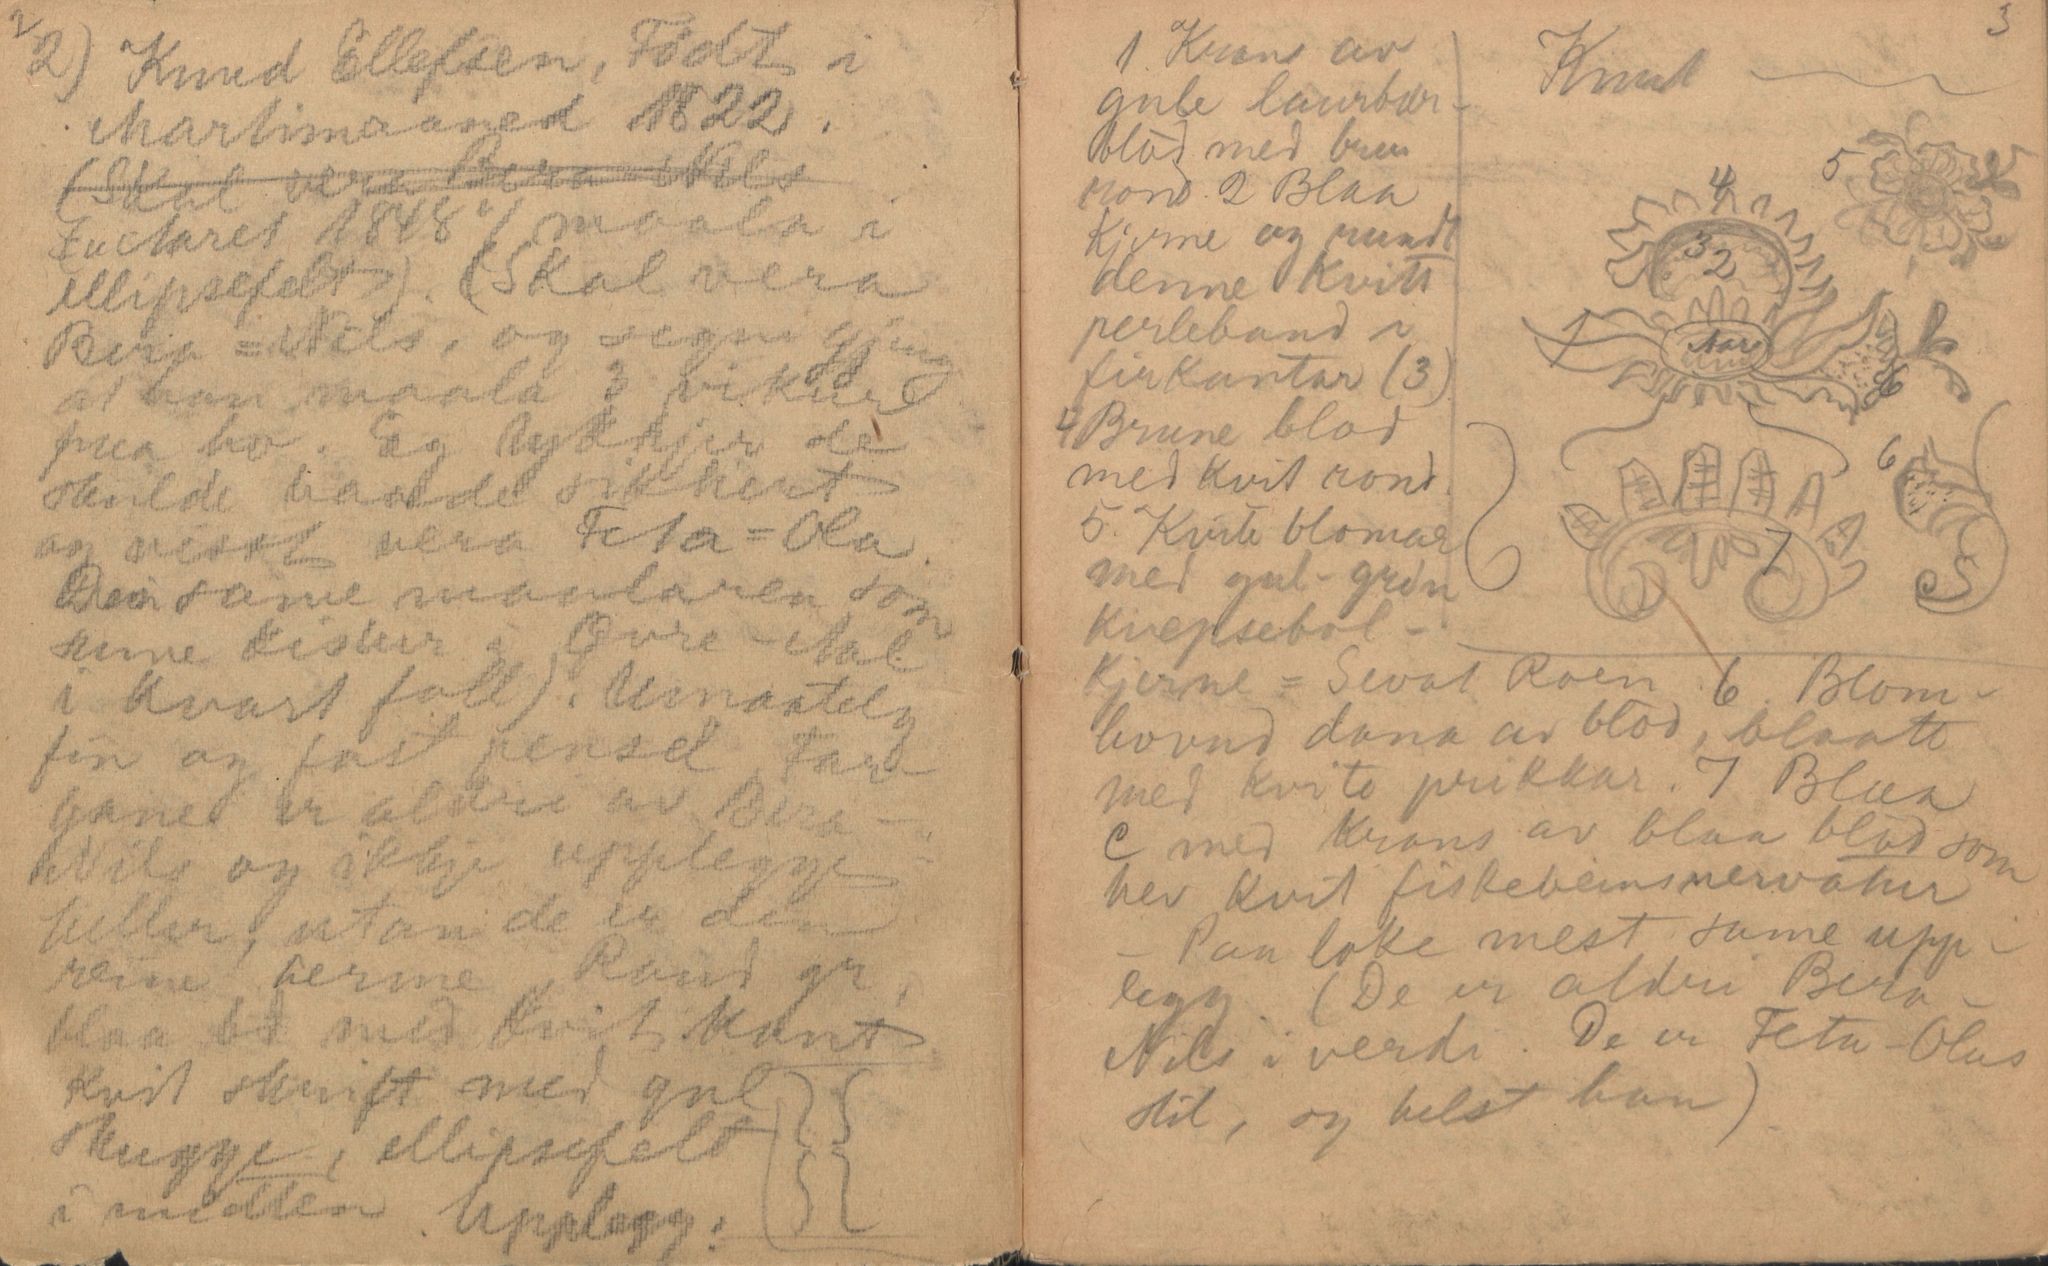 2
2) Knud Ellefsen, Födt i
Martimaaned 1822.
(Skal vera Bera Nils
Aaret 1848 maala i
ellipsefelt). (Skal vera
Bera-Nils, og segn gjeng
at han maala 3 vikur
paa ho. Eg tykkjer de
skulde baade sikkert
og visst vera Feta-Ola.
Den same maalaren som
sume kistur i Øvre-Aal
i kvart fall). Umaatelg
fin og fast pensel. Far
gane er aldri av Bera-
Nils og ikkje upplegge
heller, utan de er den
reine verme. Rand gr,
blaa bd med kvit kant
kvit skrift med gul
skugge, ellipsefelt
i midten. Upplegg:
3
Knut
1 Krans av
gule laurbær-
blöd med brun
rond. 2 Blaa
Kjerne og rundt
denne kvitt
perleband i
firkantar (3)
4 Brune blod
med kvit rond.
5. Kvite blomar
med gul-grön
kvepsebol-
kjerne = Sevat Roen. 6. Blom-
hovud dana av blöd, blaatt
med kvite prikkar. 7 Blaa
C med krans av blaa blöd som
hev kvit fiskebeinsnervatur
- Paa loke mest same upp-
legg. (De er aldri Bera-
Nils i verdi. De er Feta-Olas
stil, og helst han)
5
4
3
2
1
Aar
6
6
7